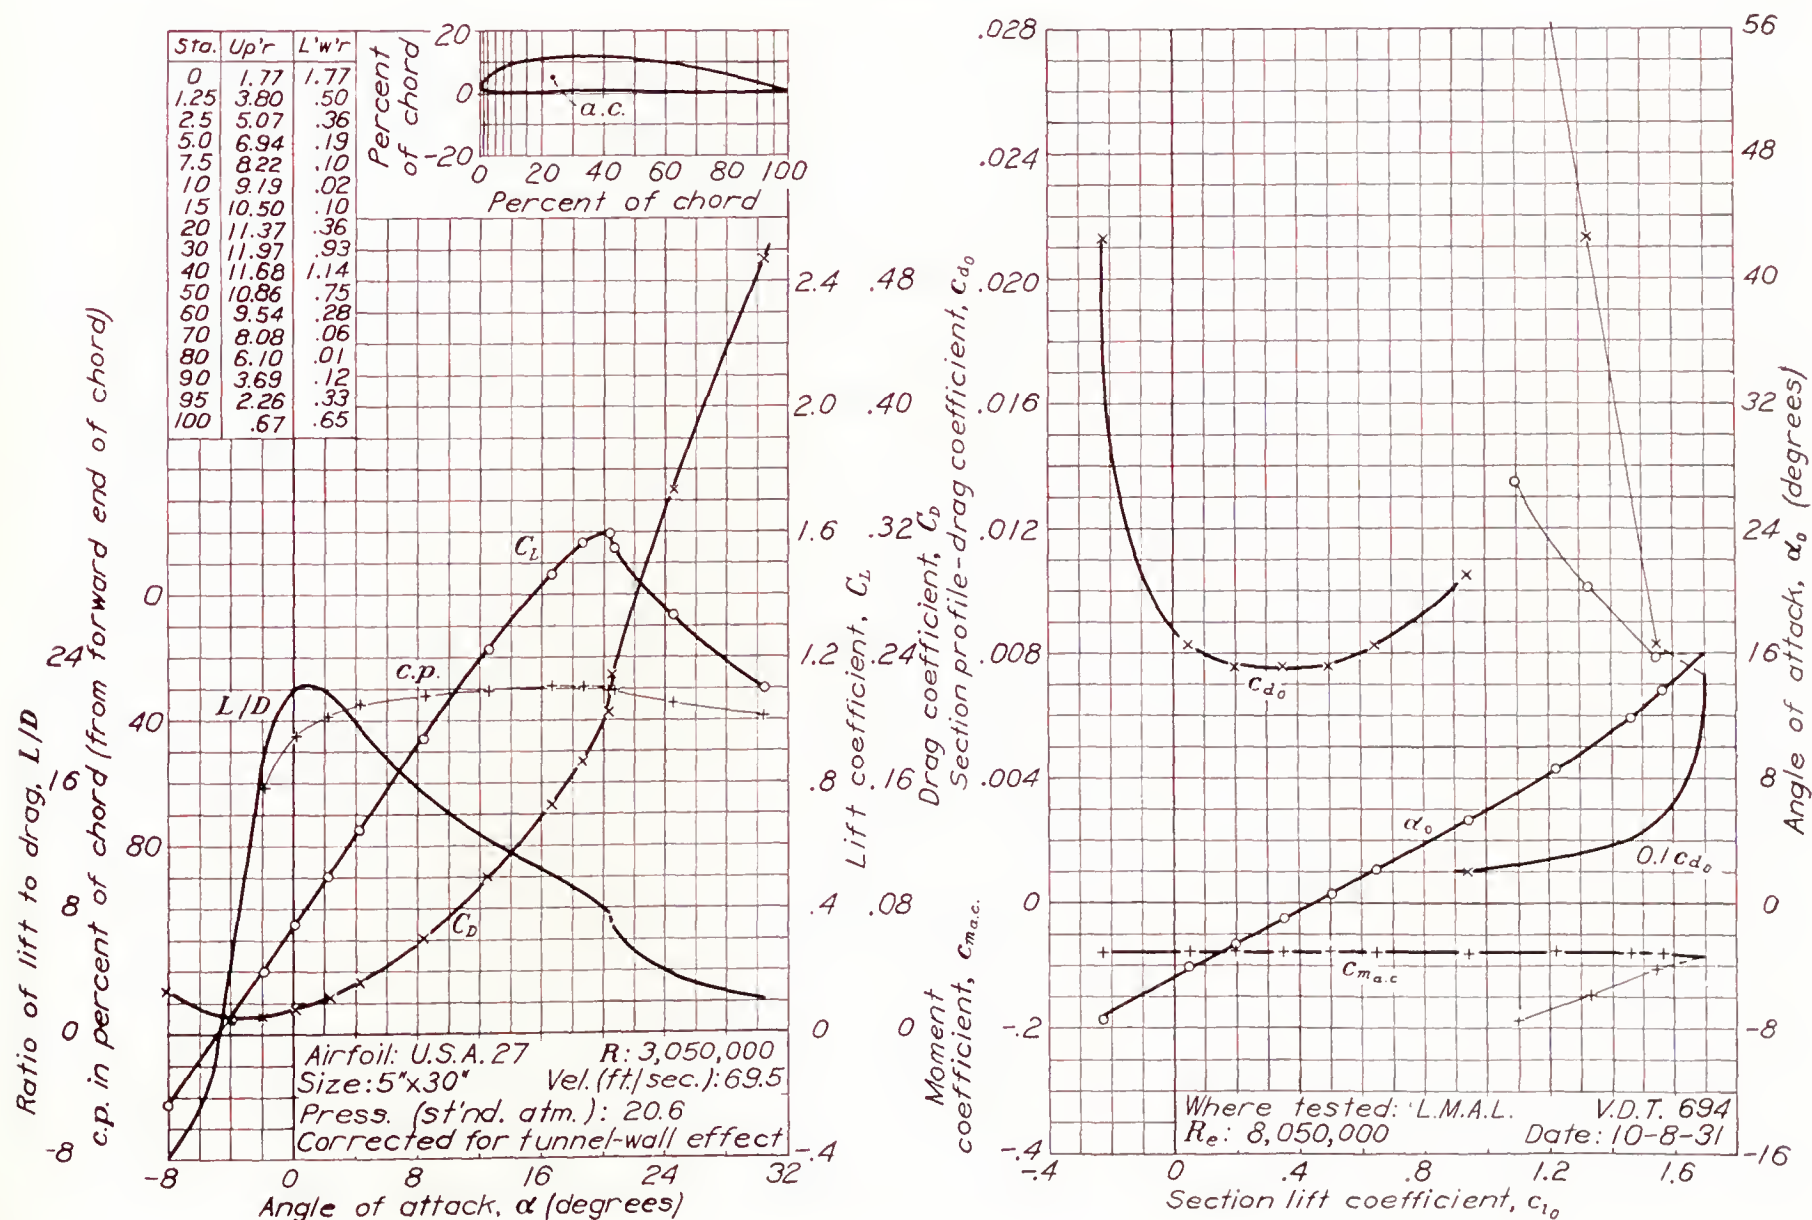 Sta. Up'r L'w'r
0 1.77 1.77
1.25 3.80 .50
2.5 5.07 .36
5.0 6.94 .19
7.5 8.22 .10
10 9.19 .02
15 10.50 .10
20 11.37 .36
30 11.97 .93
40 11.68 1.14
50 10.86 .75
60 9.54 .28
70 8.08 .06
80 6.10 .01
90 3.69 .12
95 2.26 .33
100 .67 .65
Percent
of chord
20
0
-20
a.c.
0 20 40 60 80 100
Percent of chord
Ratio of lift to drag, L/D
24
16
8
0
-8
c.p. in percent of chord (from forward end of chord)
0
40
80
L/D
c.p.
C_L
C_D
2.4 .48
2.0 .40
1.6 .32
1.2 .24
.8 .16
.4 .08
0 0
-.4
Lift coefficient, C_L
Drag coefficient, C_D
Airfoil: U.S.A. 27 R: 3,050,000
Size: 5"x30" Vel. (ft./sec.): 69.5
Press. (st'nd. atm.): 20.6
Corrected for tunnel-wall effect
-8 0 8 16 24 32
Angle of attack, α (degrees)
Section profile-drag coefficient, c_d₀
.028
.024
.020
.016
.012
.008
.004
0
-.2
-.4
Moment
coefficient, c_m a.c.
c_d₀
α₀
0.1 c_d₀
c_m a.c
56
48
40
32
24
16
8
0
-8
-16
Angle of attack, α₀ (degrees)
Where tested: L.M.A.L. V.D.T. 694
R_e: 8,050,000 Date: 10-8-31
-.4 0 .4 .8 1.2 1.6
Section lift coefficient, c_l₀